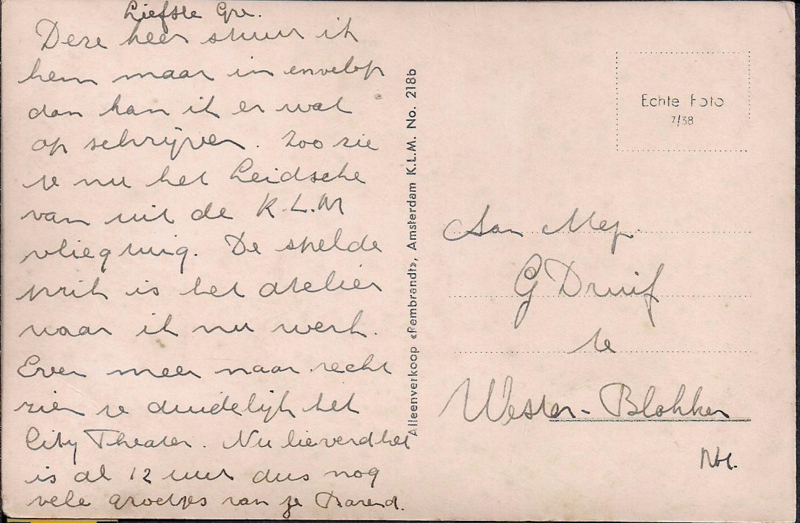 Liefste Gre.
Deze keer stuur ik
hem maar in envelop
dan kan ik er wat
op schrijven. Zoo zie
je nu het Leidsche
van uit de K.L.M
vliegtuig. De spelde
prik is het atelier
waar ik nu werk.
Even meer naar recht
zien je duidelijk het
City Theater. Nu lieverd het
is al 12 uur dus nog
vele groetjes van je Barend.
Alleenverkoop «Rembrandt», Amsterdam K.L.M. No. 2186
Echte Foto
7/38
Aan Mej.
G Druif
te
Wester-Blokker
NH.